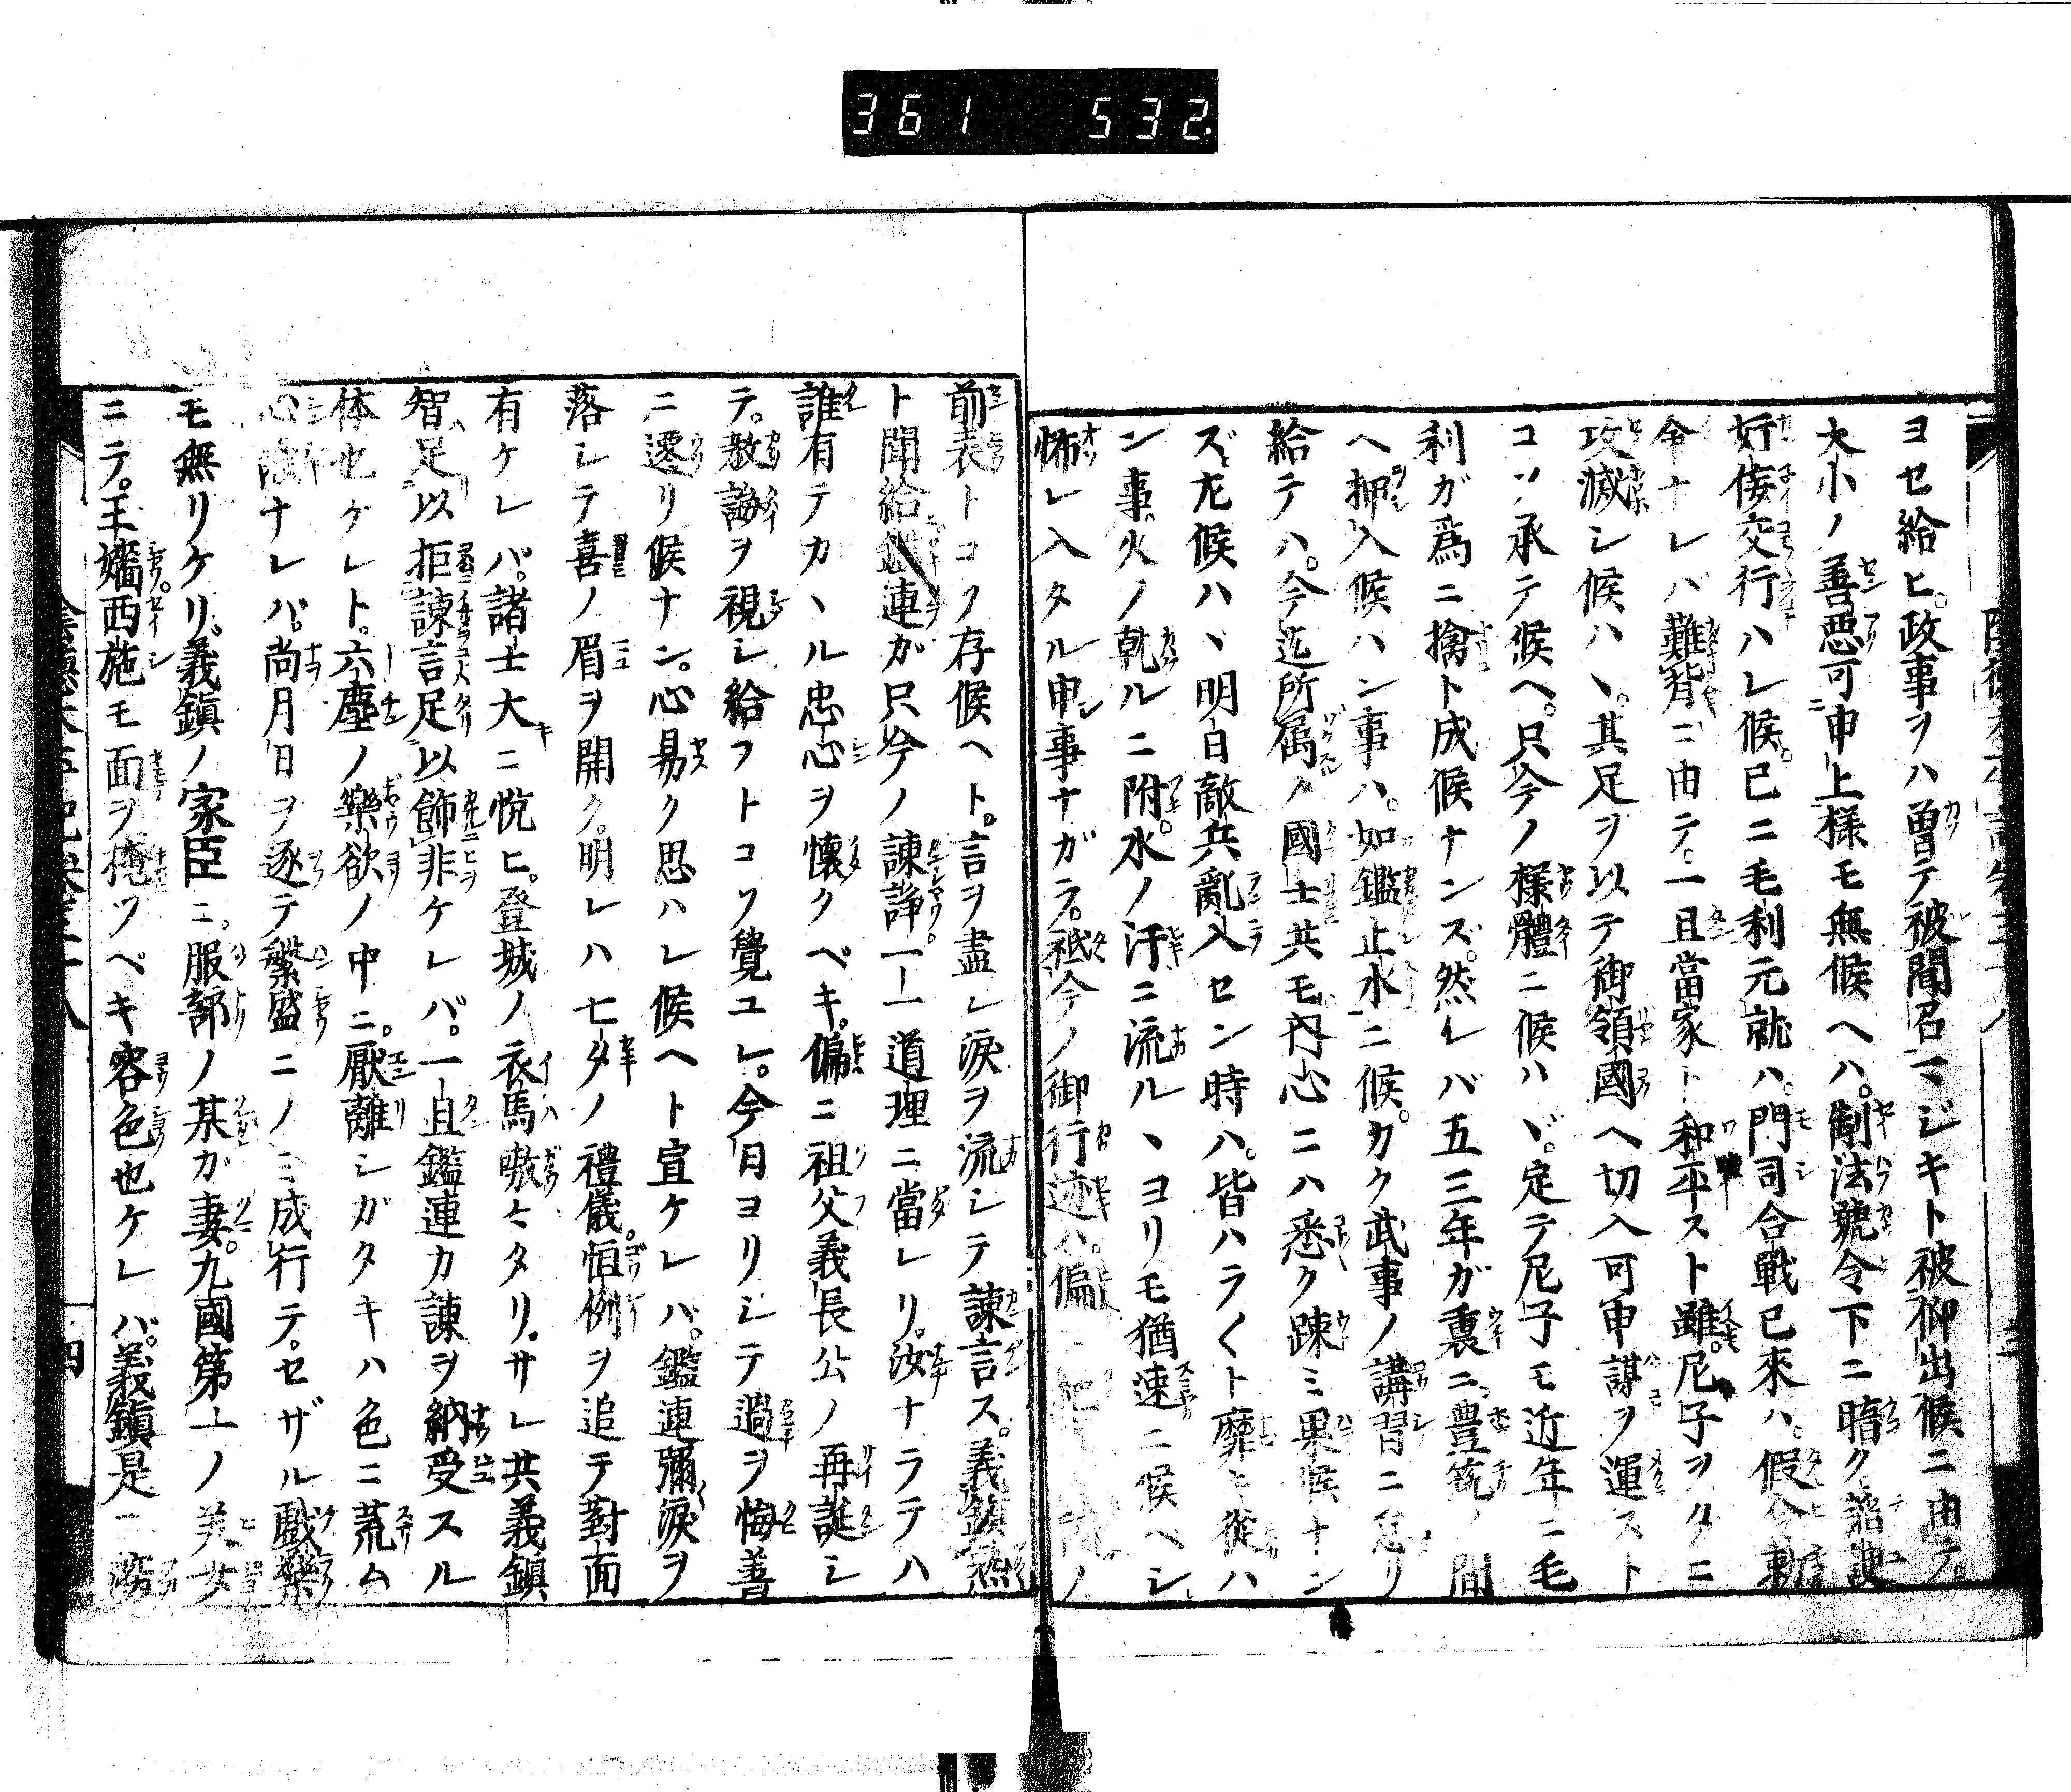 361 532.
ヨセ給ヒ。政事ヲハ曽テ被聞召マジキト被仰出候ニ由テ
大小ノ善悪可申上様モ無候ヘハ。制法號令下ニ暗ク。諂諛
奸倭交行ハレ候。已ニ毛利元就ハ。門司合戰已來ハ。假令
令ナレバ難背ニ由テ。一旦當家ト和平スト雖。尼子ヲタニ
攻滅シ候ハヽ。其足ヲ以テ御領國ヘ切入可申謀ヲ運スト
コソ承テ候ヘ。只今ノ様體ニ候ハヾ。定テ尼子モ近年ニ毛
利ガ爲ニ擒ト成候ナンズ。然レバ五三年ガ裏ニ。豊筑ノ間
ヘ押入候ハン事ハ。如鑑止水ニ候。カク武事ノ講習ニ怠リ
給テハ。今迄所属ノ國士共モ内心ニハ悉ク疎ミ果候ナン
ズ。左候ハヽ明日敵兵亂入セン時ハ。皆ハラ〱ト靡キ從ハ
ン事。火ノ乾ルニ附。水ノ汗ニ流ルヽヨリモ猶速ニ候ヘシ
怖レ入タル申事ナガラ。祗今ノ御行迹ハ。偏ニ
前表トコソ存候ヘト。言ヲ盡シ淚ヲ流シテ諫言ス。義鎮熟
ト聞給鑑連ガ只今ノ諫諍一一道理ニ當レリ。汝ナラテハ
誰有テカヽル忠心ヲ懷クベキ。偏ニ祖父義長公ノ再誕シ
テ。教誨ヲ視シ給フトコソ覺ユレ。今日ヨリシテ過ヲ悔善
ニ遷リ候ナン。心易ク思ハレ候ヘト宣ケレバ。鑑連彌淚ヲ
落シテ喜ノ眉ヲ開ク。明レハ七夕ノ禮儀。恒例ヲ追テ對面
有ケレバ。諸士大ニ悅ヒ。登城ノ衣馬嗷々タリ。サレ共義鎮
智足以拒諫言足以飾非ケレバ。一旦鑑連カ諫ヲ納受スル
体也ケレト。六塵ノ樂欲ノ中ニ。厭離シガタキハ色ニ荒ム
ナレバ。尚月日ヲ逐テ繁盛ニノミ成行テ。セザル戯樂
モ無リケリ。義鎮ノ家臣ニ。服部ノ某ガ妻。九國第一ノ美女
ニテ。王嬙西施モ面ヲ掩ツベキ容色也ケレバ。義鎮是ニ
四